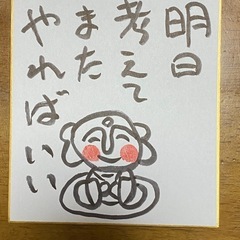 明日
考えて
また
やればいい